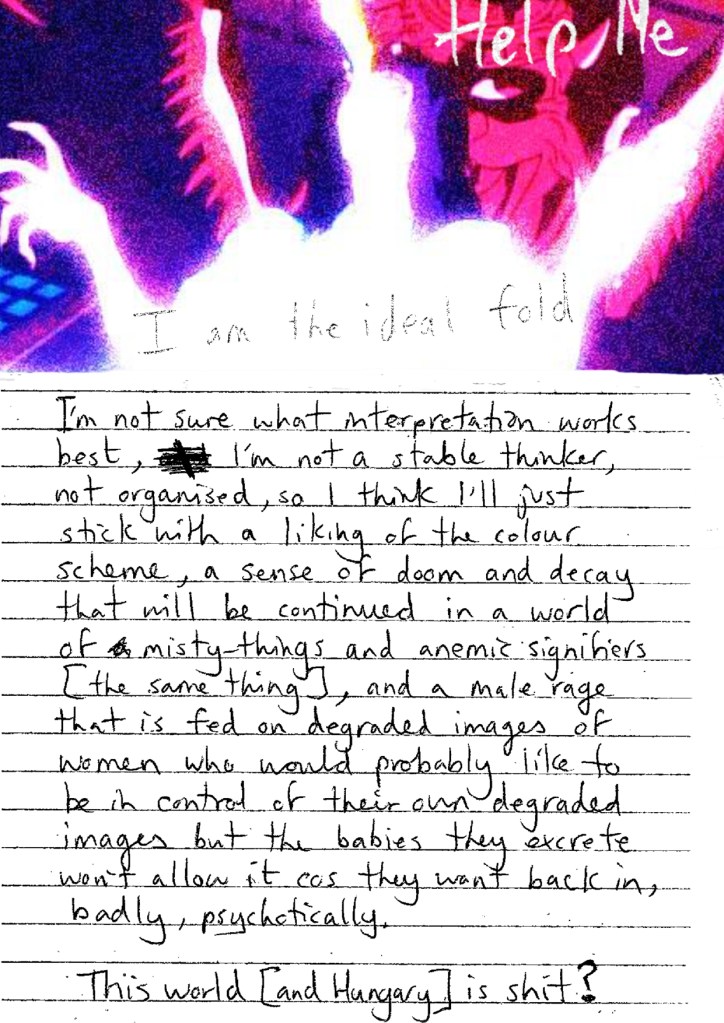 Help Me
I am the ideal fold
I'm not sure what interpretation works
best, I'm not a stable thinker,
not organised, so I think I'll just
stick with a liking of the colour
scheme, a sense of doom and decay
that will be continued in a world
of misty-things and anemic signifiers
[the same thing], and a male rage
that is fed on degraded images of
women who would probably like to
be in control of their own degraded
images but the babies they excrete
won't allow it cos they want back in,
badly, psychotically.
This world [and Hungary] is shit?